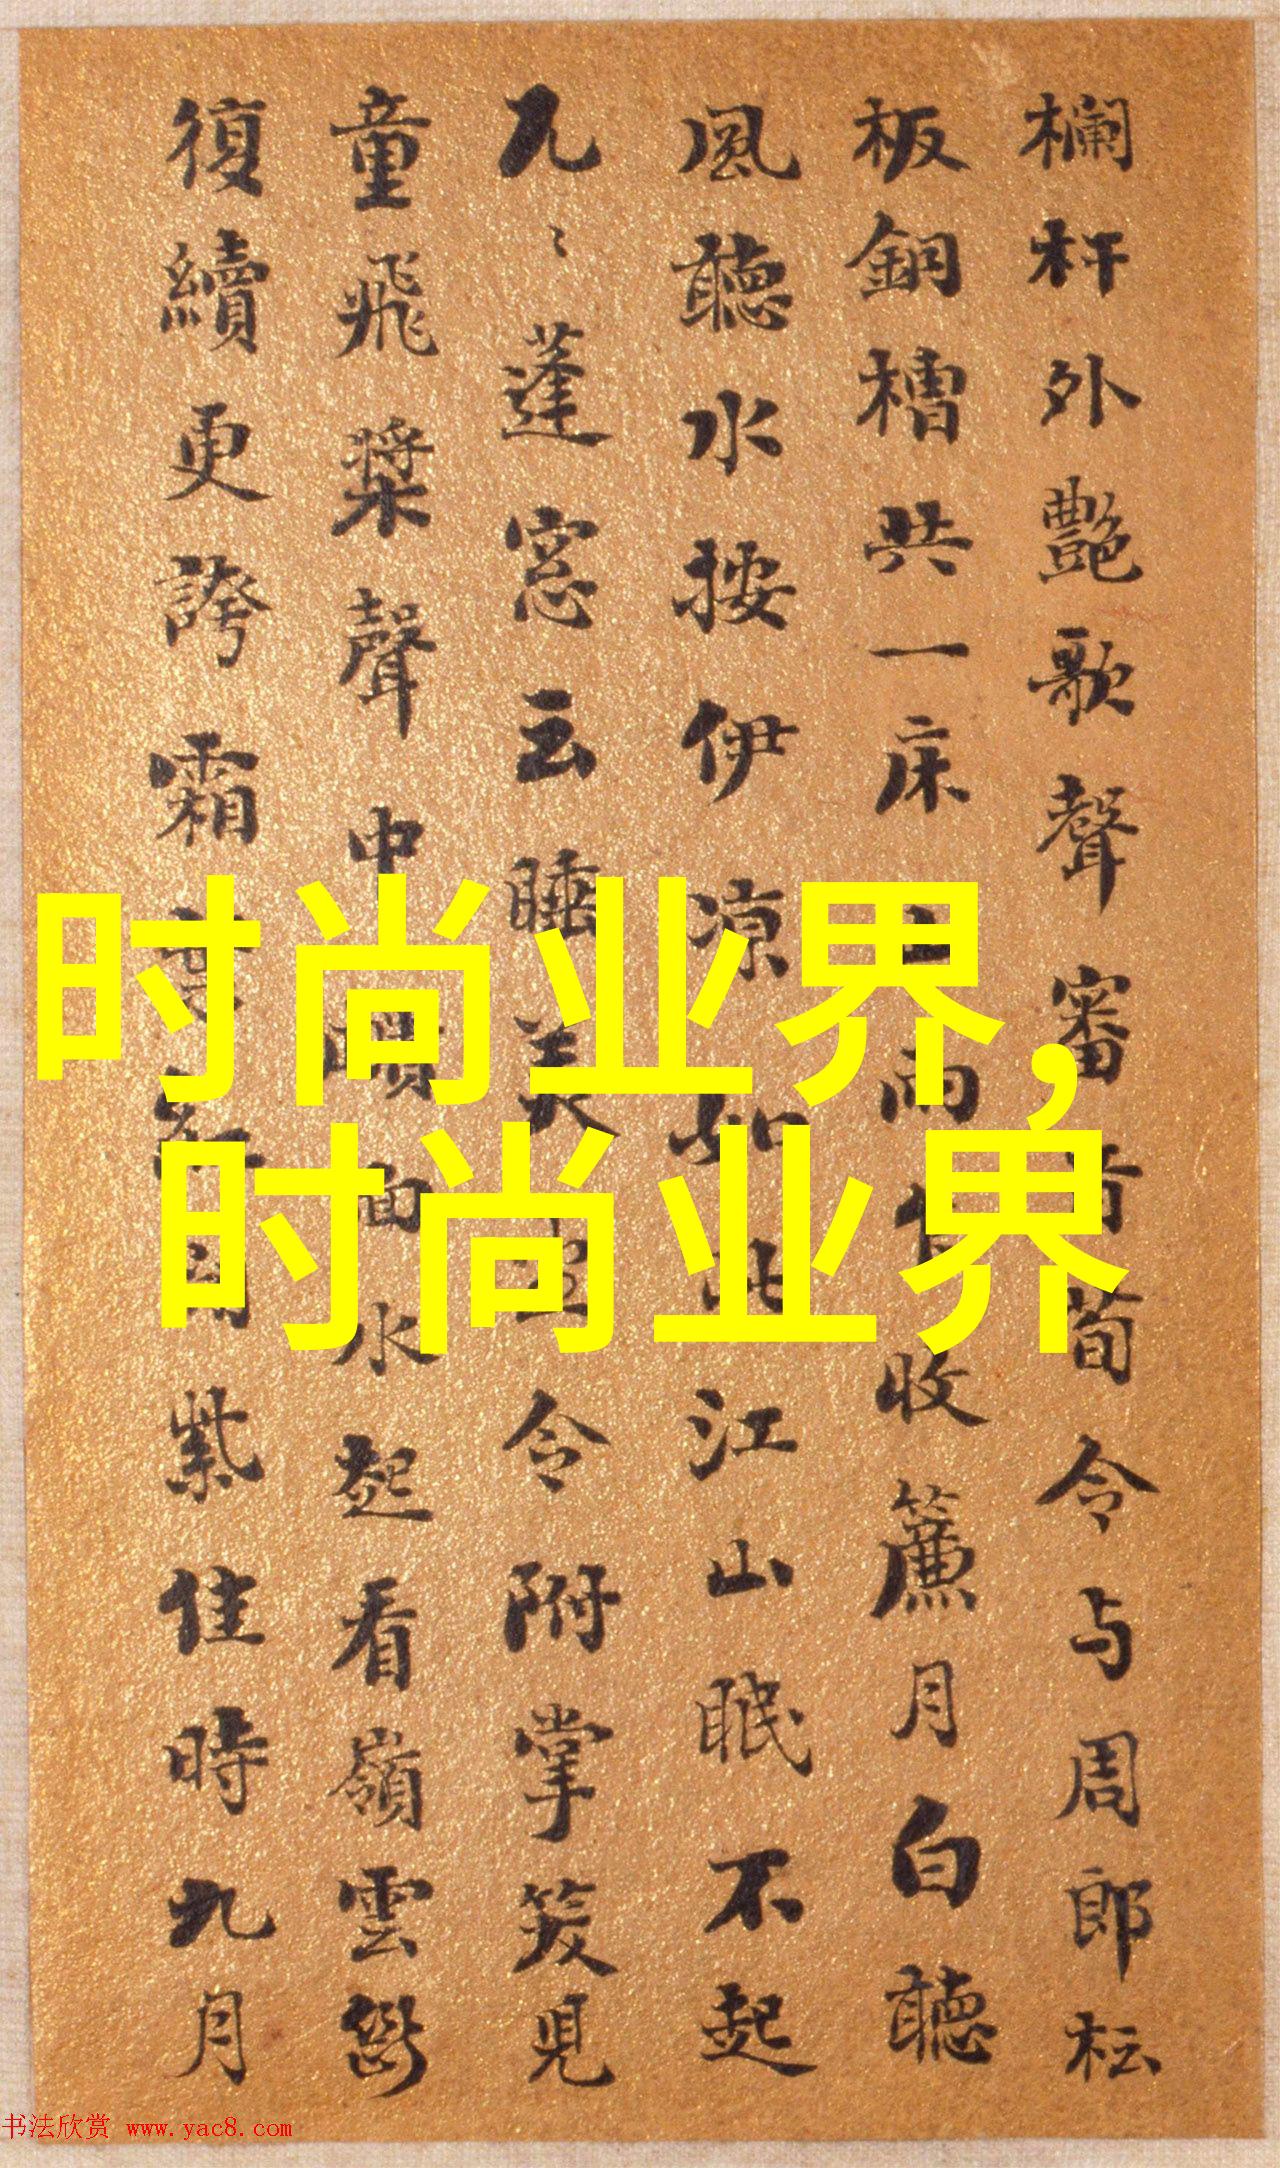 欄杆外艷歌聲審音荀令与周郎枟
板銅槽共一床雨收簾月白聽
風聽水按伊凉如此江山眠不起
兀〻蓬窓云睡美令附掌笑見
童飛槳聲中面水起看嶺雲
復續更誇霜紫佳時九月
时尚业界,
时尚业界
书法欣赏 www.yac8.com